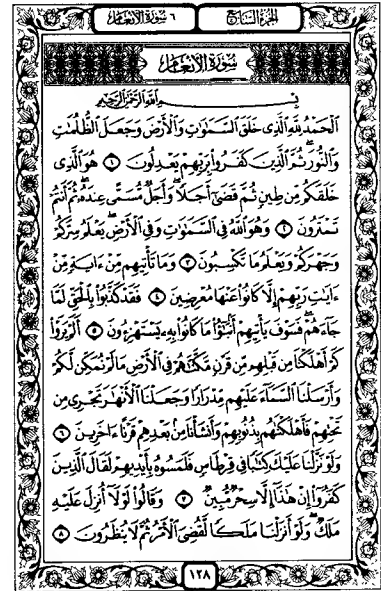 ٦ سورة الأنعام
الجزء السابع
سورة الأنعام
بسم الله الرحمن الرحيم
ٱلْحَمْدُ لِلَّهِ ٱلَّذِى خَلَقَ ٱلسَّمَٰوَٰتِ وَٱلْأَرْضَ وَجَعَلَ ٱلظُّلُمَٰتِ
وَٱلنُّورَ ۖ ثُمَّ ٱلَّذِينَ كَفَرُوا۟ بِرَبِّهِمْ يَعْدِلُونَ ١ هُوَ ٱلَّذِى
خَلَقَكُم مِّن طِينٍ ثُمَّ قَضَىٰٓ أَجَلًا ۖ وَأَجَلٌ مُّسَمًّى عِندَهُۥ ۖ ثُمَّ أَنتُمْ
تَمْتَرُونَ ٢ وَهُوَ ٱللَّهُ فِى ٱلسَّمَٰوَٰتِ وَفِى ٱلْأَرْضِ ۖ يَعْلَمُ سِرَّكُمْ
وَجَهْرَكُمْ وَيَعْلَمُ مَا تَكْسِبُونَ ٣ وَمَا تَأْتِيهِم مِّنْ ءَايَةٍ مِّنْ
ءَايَٰتِ رَبِّهِمْ إِلَّا كَانُوا۟ عَنْهَا مُعْرِضِينَ ٤ فَقَدْ كَذَّبُوا۟ بِٱلْحَقِّ لَمَّا
جَآءَهُمْ ۖ فَسَوْفَ يَأْتِيهِمْ أَنۢبَٰٓؤُا۟ مَا كَانُوا۟ بِهِۦ يَسْتَهْزِءُونَ ٥ أَلَمْ يَرَوْا۟
كَمْ أَهْلَكْنَا مِن قَبْلِهِم مِّن قَرْنٍ مَّكَّنَّٰهُمْ فِى ٱلْأَرْضِ مَا لَمْ نُمَكِّن لَّكُمْ
وَأَرْسَلْنَا ٱلسَّمَآءَ عَلَيْهِم مِّدْرَارًا وَجَعَلْنَا ٱلْأَنْهَٰرَ تَجْرِى مِن
تَحْتِهِمْ فَأَهْلَكْنَٰهُم بِذُنُوبِهِمْ وَأَنشَأْنَا مِنۢ بَعْدِهِمْ قَرْنًا ءَاخَرِينَ ٦
وَلَوْ نَزَّلْنَا عَلَيْكَ كِتَٰبًا فِى قِرْطَاسٍ فَلَمَسُوهُ بِأَيْدِيهِمْ لَقَالَ ٱلَّذِينَ
كَفَرُوٓا۟ إِنْ هَٰذَآ إِلَّا سِحْرٌ مُّبِينٌ ٧ وَقَالُوا۟ لَوْلَآ أُنزِلَ عَلَيْهِ
مَلَكٌ ۖ وَلَوْ أَنزَلْنَا مَلَكًا لَّقُضِىَ ٱلْأَمْرُ ثُمَّ لَا يُنظَرُونَ ٨
١٢٨